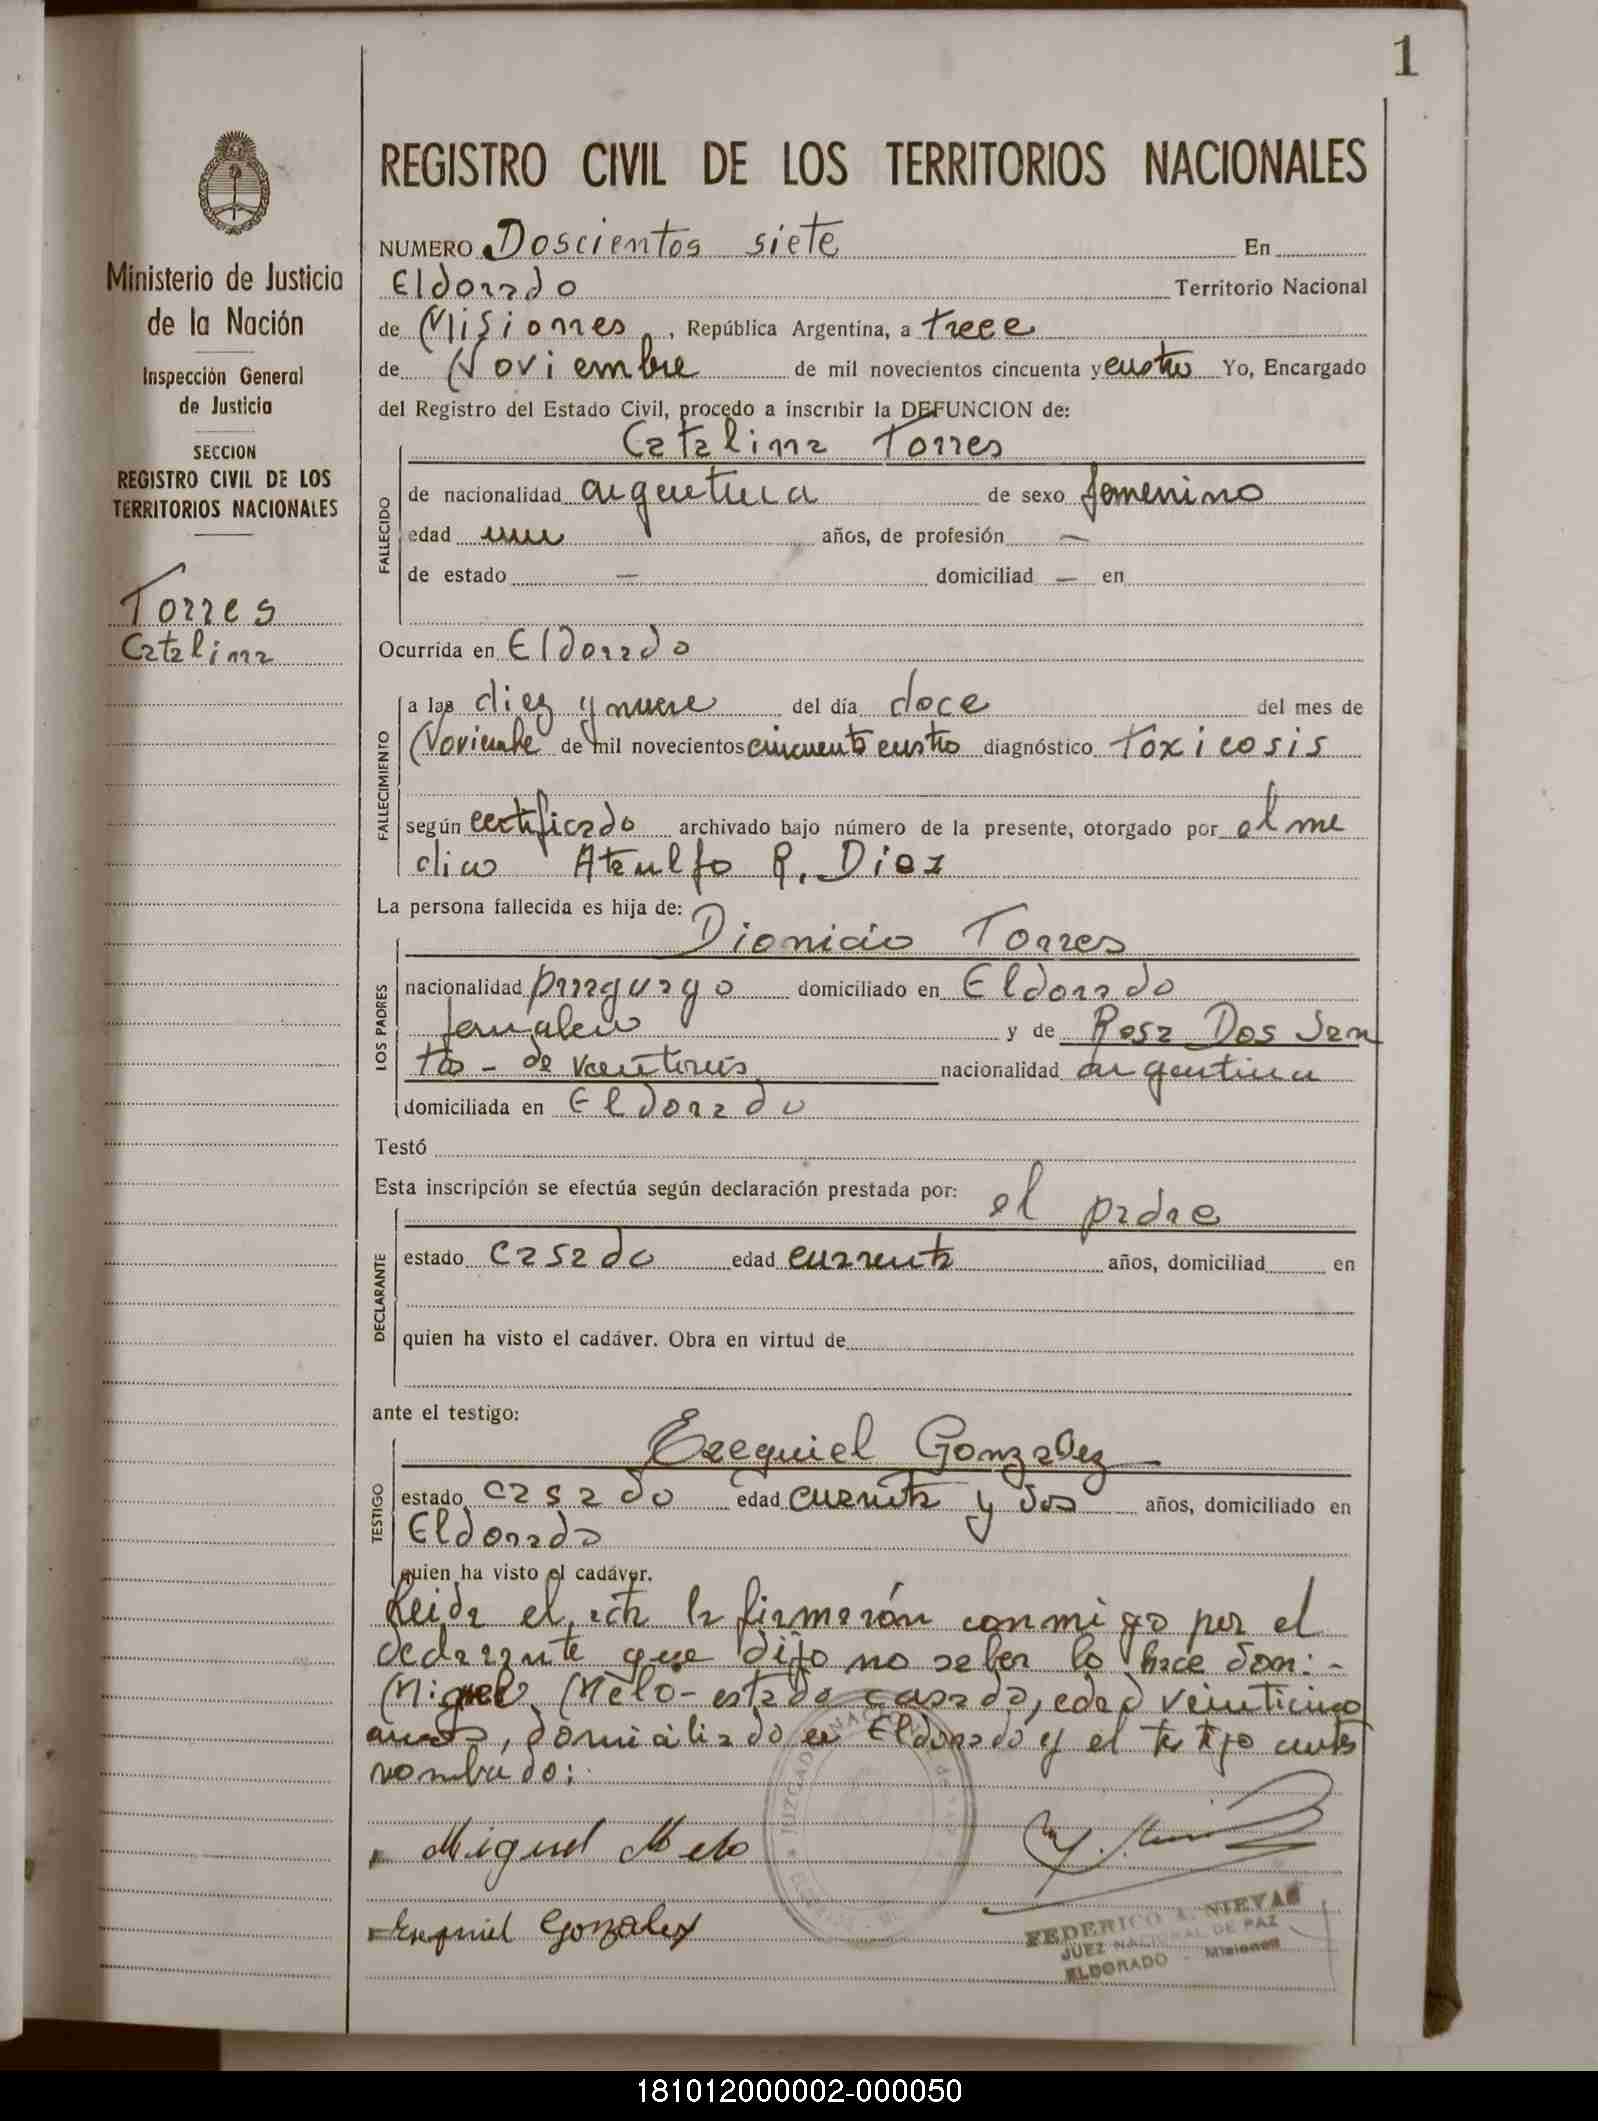 1
REGISTRO CIVIL DE LOS TERRITORIOS NACIONALES
Ministerio de Justicia
de la Nación
Inspección General
de Justicia
SECCION
REGISTRO CIVIL DE LOS
TERRITORIOS NACIONALES
Torres
Catalina
NUMERO Doscientos siete En
Eldorado Territorio Nacional
de Misiones, República Argentina, a trece
de Noviembre de mil novecientos cincuenta y cuatro Yo, Encargado
del Registro del Estado Civil, procedo a inscribir la DEFUNCION de:
Catalina Torres
FALLECIDO
de nacionalidad argentina de sexo femenino
edad un años, de profesión —
de estado — domiciliad — en
Ocurrida en Eldorado
FALLECIMIENTO
a las diez y nueve del día doce del mes de
Noviembre de mil novecientos cincuenta cuatro diagnóstico Toxicosis
según certificado archivado bajo número de la presente, otorgado por el me
dico Ataulfo R. Diez
La persona fallecida es hija de:
Dionicio Torres
LOS PADRES
nacionalidad paraguayo domiciliado en Eldorado
jornalero y de Rosa Dos San
tos - de veintitres nacionalidad argentina
domiciliada en Eldorado
Testó
Esta inscripción se efectúa según declaración prestada por: el padre
DECLARANTE
estado casado edad cuarenta años, domiciliad en
quien ha visto el cadáver. Obra en virtud de
ante el testigo:
Ezequiel Gonzalez
TESTIGO
estado casado edad cuarenta y dos años, domiciliado en
Eldorado
quien ha visto el cadáver.
Leida el acta la firmarón conmigo por el
declarante que dijo no saber lo hace don: -
Miguel Melo - estado casado, edad veinticinco
años, domiciliado en Eldorado y el testigo antes
nombrado:
Miguel Melo
Ezequiel Gonzalez
JUZGADO NACIONAL DE PAZ
FEDERICO A. NIEVAS
JUEZ NACIONAL DE PAZ
ELDORADO - Misiones
181012000002-000050